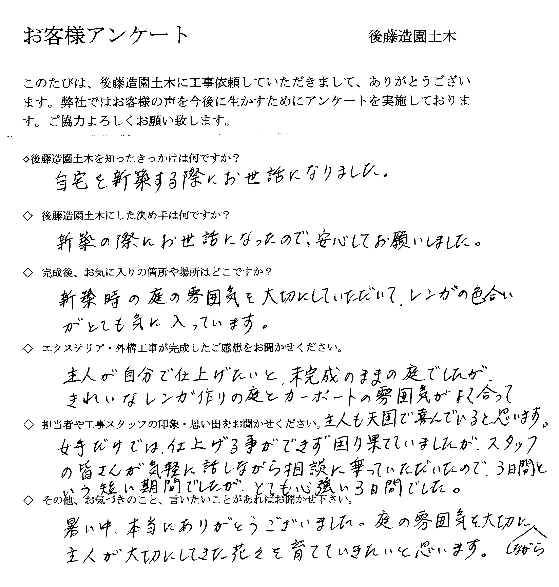 お客様アンケート 後藤造園土木
このたびは、後藤造園土木に工事依頼していただきまして、ありがとうござい
ます。弊社ではお客様の声を今後に生かすためにアンケートを実施しておりま
す。ご協力よろしくお願い致します。
◇後藤造園土木を知ったきっかけは何ですか？
自宅を新築する際にお世話になりました。
◇ 後藤造園土木にした決め手は何ですか？
新築の際にお世話になったので、安心してお願いしました。
◇ 完成後、お気に入りの箇所や場所はどこですか？
新築時の庭の雰囲気を大切にしていただいて、レンガの色合い
がとても気に入っています。
◇ エクステリア・外構工事が完成したご感想をお聞かせください。
主人が自分で仕上げたいと、未完成のままの庭でしたが、
きれいなレンガ作りの庭とカーポートの雰囲気がよく合って
主人も天国で喜んでいると思います。
◇ 担当者や工事スタッフの印象・思い出をお聞かせください。
女手だけでは、仕上げる事ができず困り果てていましたが、スタッフ
の皆さんが気軽に話しながら相談に乗っていただいたので、3日間と
いう短い期間でしたが、とても心強い3日間でした。
◇ その他、お気づきのこと、言いたいことがあればお聞かせ下さい。
暑い中、本当にありがとうございました。庭の雰囲気を大切にしながら
主人が大切にしてきた花々を育てていきたいと思います。